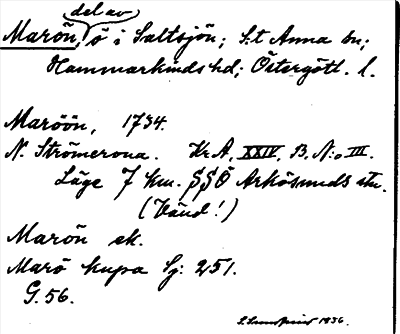 del av
Marön, ö i Saltsjön; S:t Anna sn;
Hammarkinds hd; Östergötl. l.
Maröön, 1734.
N. Strömcrona. Kr.A. XXIV. B. N:o III.
Läge 7 km. SSÖ Arkösunds stn.
(Vänd!)
Marön ek.
Marö kupa Sj: 251.
G. 56.
1936.